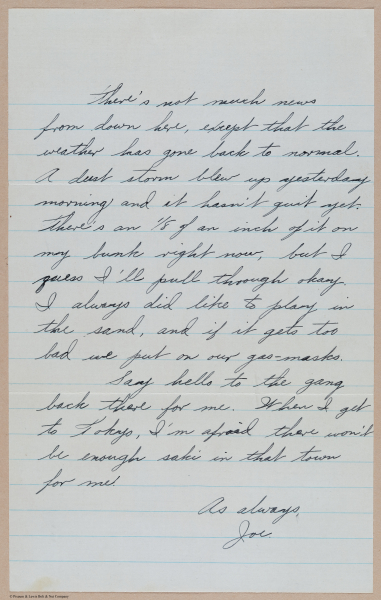 There's not much news
from down here, except that the
weather has gone back to normal.
A dust storm blew up yesterday
morning and it hasn't quit yet.
There's an 1/8 of an inch of it on
my bunk right now, but I
guess I'll pull through okay.
I always did like to play in
the sand, and if it gets too
bad we put on our gas-masks.
Say hello to the gang
back there for me. When I get
to Tokyo, I'm afraid there won't
be enough saki in that town
for me!
As always,
Joe